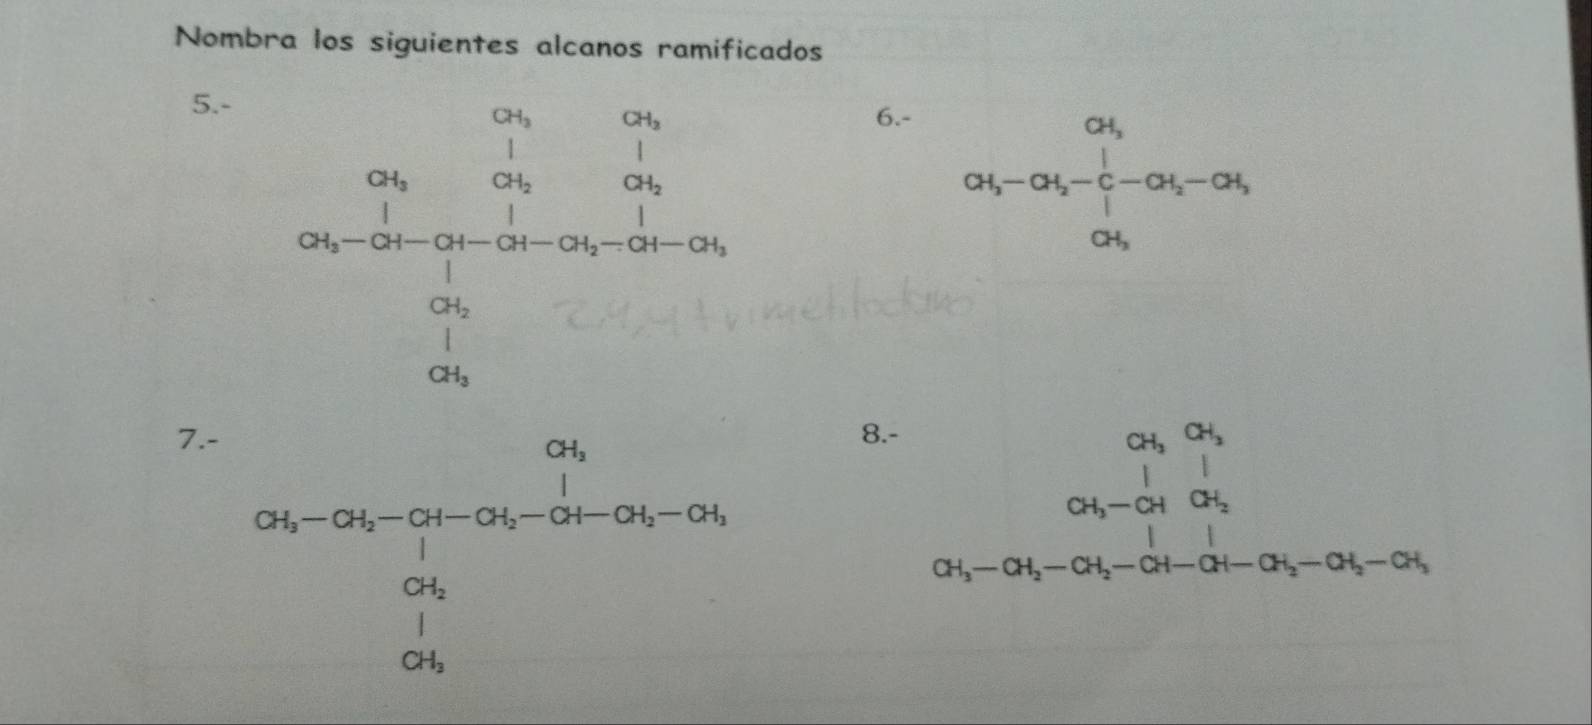 Nombra los siguientes alcanos ramificados
5.-
CH₃ CH₃
| |
CH₃ CH₂ CH₂
| | |
CH₃—CH—CH—CH—CH₂—CH—CH₃
|
CH₂
|
CH₃
6.-
CH₃
|
CH₃—CH₂—C—CH₂—CH₃
|
CH₃
2,4,4 trimetiloctano
7.-
CH₃
|
CH₃—CH₂—CH—CH₂—CH—CH₂—CH₃
|
CH₂
|
CH₃
8.-
CH₃ CH₃
| |
CH₃—CH CH₂
| |
CH₃—CH₂—CH₂—CH—CH—CH₂—CH₂—CH₃